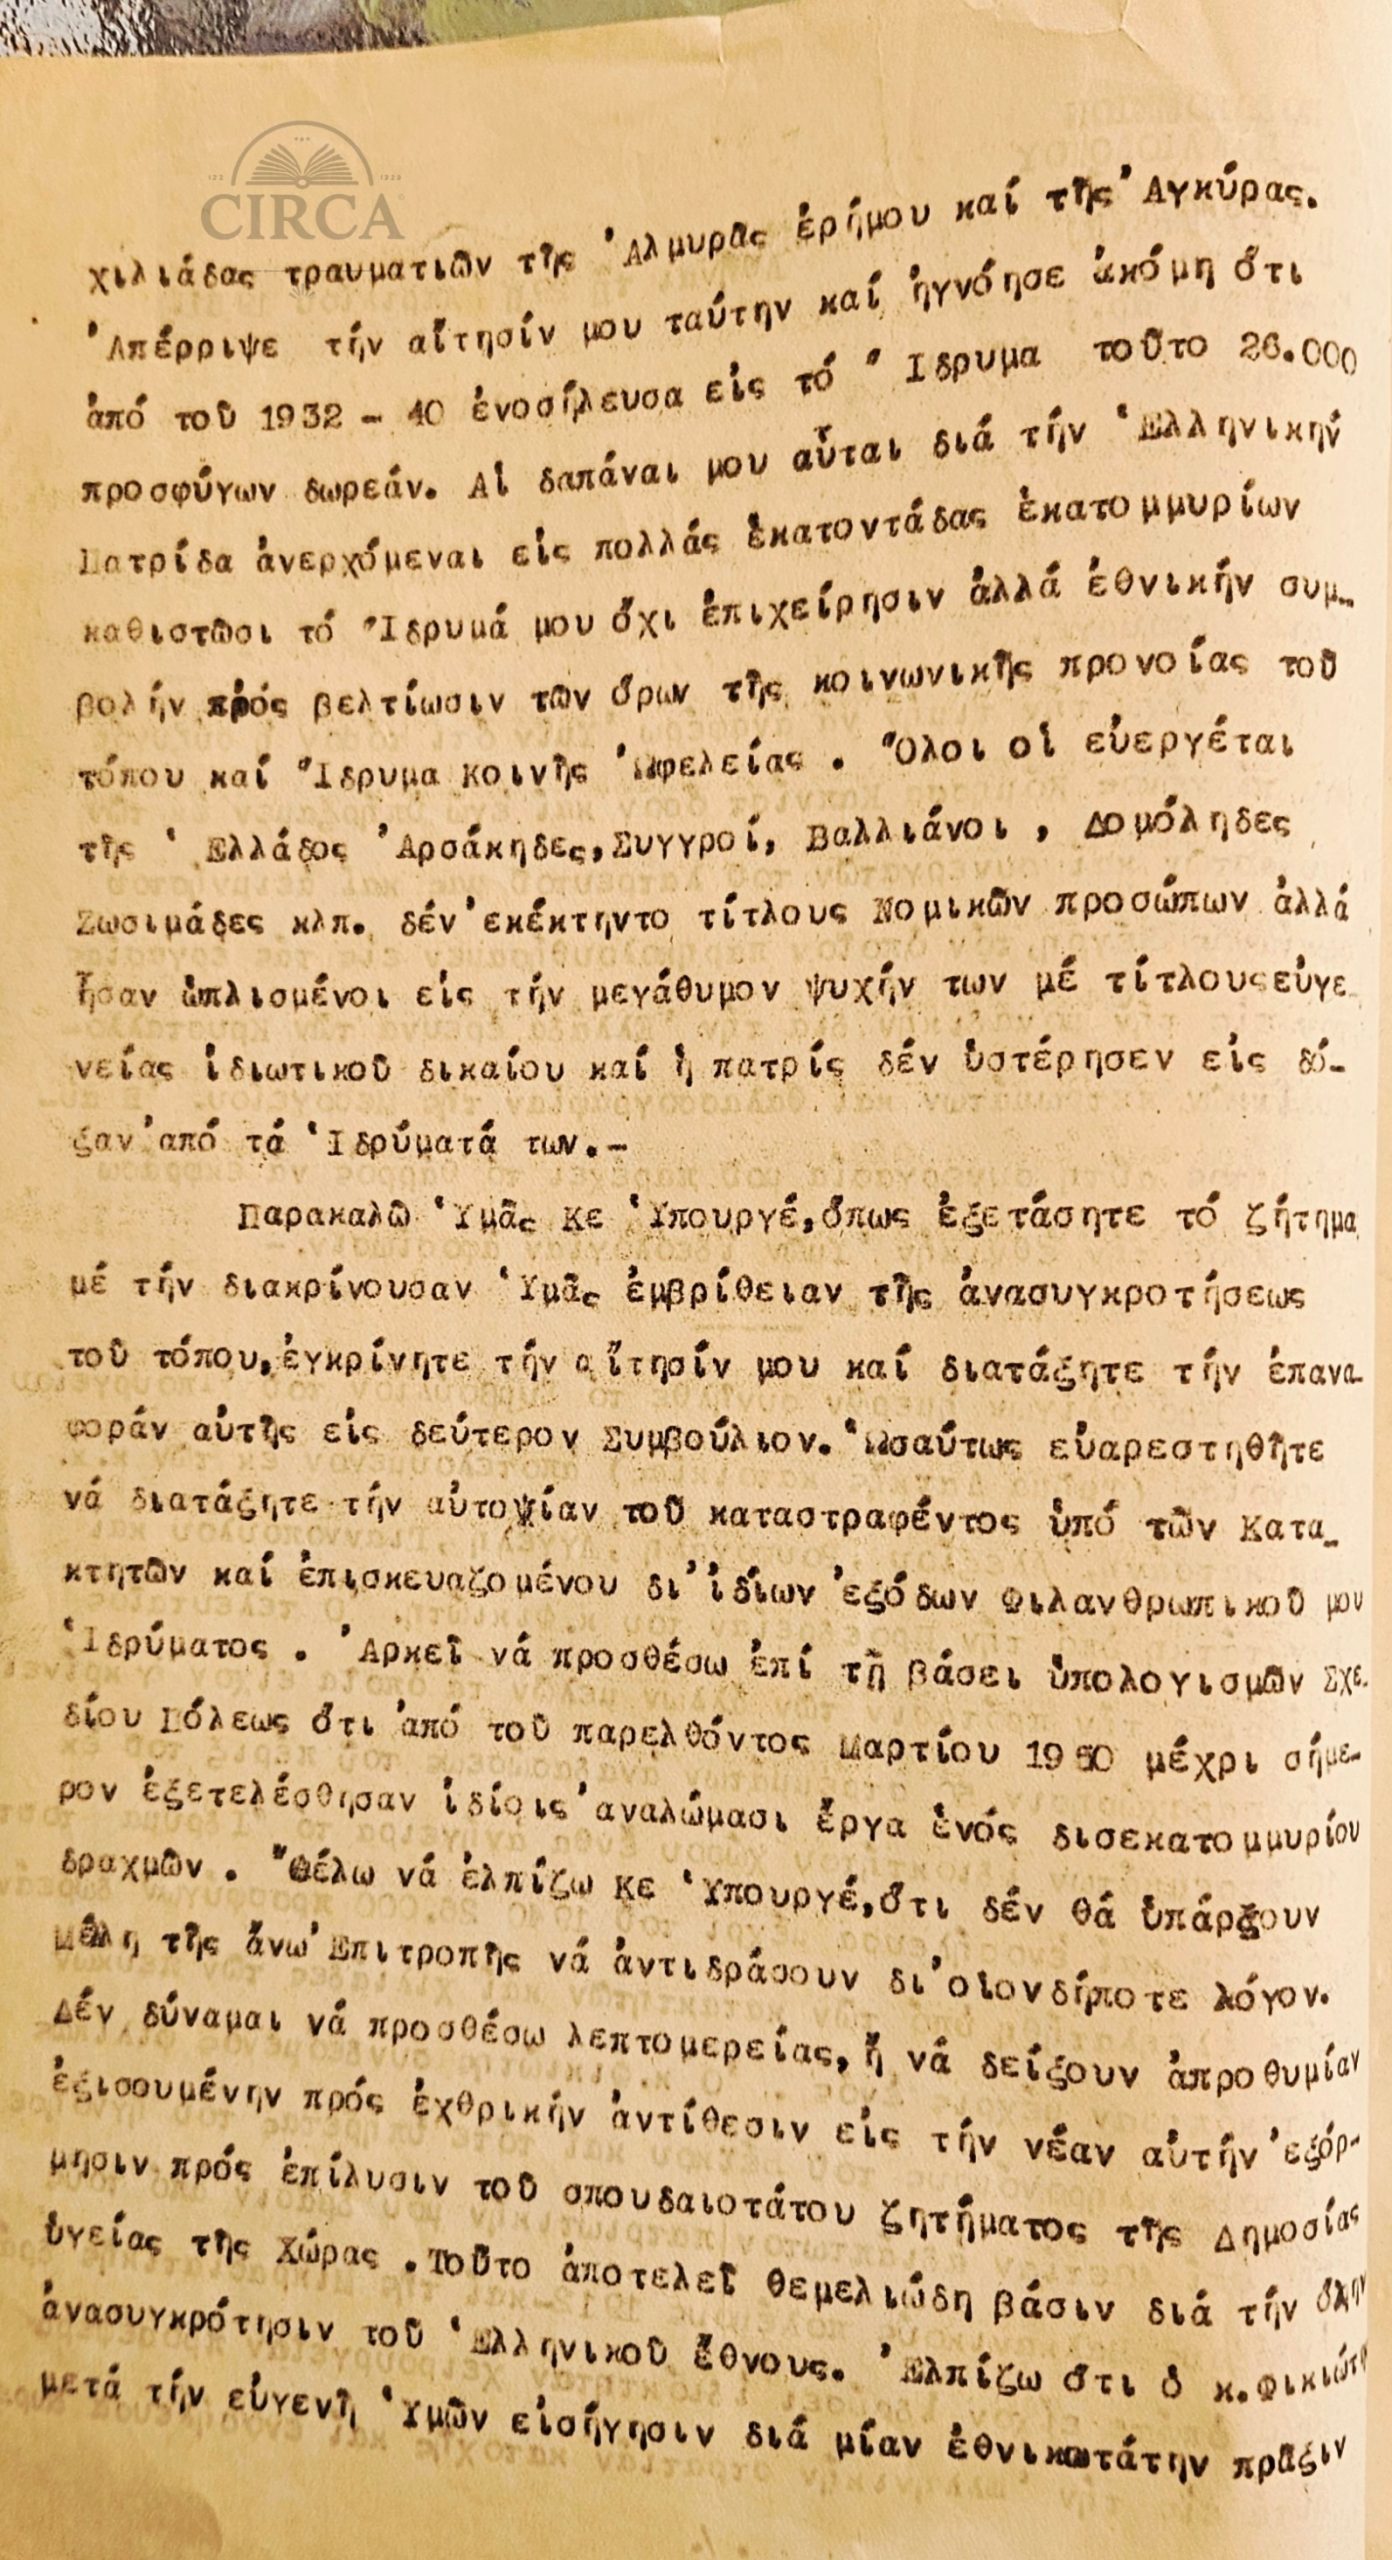 CIRCA
χιλιάδας τραυματιῶν τῆς ᾿Αλμυρᾶς ἐρήμου καί τῆς ᾿Αγκύρας.
᾿Απέρριψε τήν αἴτησίν μου ταύτην καί ἠγνόησε ἀκόμη ὅτι
ἀπό τοῦ 1932 - 40 ἐνοσήλευσα εἰς τό Ἵδρυμα τοῦτο 26.000
προσφύγων δωρεάν. Αἱ δαπάναι μου αὗται διά τήν ῾Ελληνικήν
Πατρίδα ἀνερχόμεναι εἰς πολλάς ἑκατοντάδας ἑκατομμυρίων
καθιστῶσι τό Ἵδρυμά μου ὄχι ἐπιχείρησιν ἀλλά ἐθνικήν συμ-
βολήν πρός βελτίωσιν τῶν ὅρων τῆς κοινωνικῆς προνοίας τοῦ
τόπου καί Ἵδρυμα Κοινῆς ᾿Ωφελείας . Ὅλοι οἱ εὐεργέται
τῆς ῾Ελλάδος ᾿Αρσάκηδες, Συγγροί, Βαλλιάνοι , Δομόληδες
Ζωσιμάδες κλπ. δέν ᾿εκέκτηντο τίτλους Νομικῶν προσώπων ἀλλά
ἦσαν ὡπλισμένοι εἰς τήν μεγάθυμον ψυχήν των μέ τίτλους εὐγε
νείας ἰδιωτικοῦ δικαίου καί ἡ πατρίς δέν ὑστέρησεν εἰς δό-
ξαν ᾿από τά ῾Ιδρύματά των.-
Παρακαλῶ ῾Υμᾶς Κε ῾Υπουργέ, ὅπως ἐξετάσητε τό ζήτημα
μέ τήν διακρίνουσαν ῾Υμᾶς ἐμβρίθειαν τῆς ἀνασυγκροτήσεως
τοῦ τόπου, ἐγκρίνητε τήν αἴτησίν μου καί διατάξητε τήν ἐπανα-
φοράν αὐτῆς εἰς δεύτερον Συμβούλιον. ῾Ωσαύτως εὐαρεστηθῆτε
νά διατάξητε τήν αὐτοψίαν τοῦ καταστραφέντος ὑπό τῶν Κατα-
κτητῶν καί ἐπισκευαζομένου δι᾿ ἰδίων ᾿εξόδων Φιλανθρωπικοῦ μου
῾Ιδρύματος . ᾿Αρκεῖ νά προσθέσω ἐπί τῇ βάσει ὑπολογισμῶν Σχε-
δίου Πόλεως ὅτι ἀπό τοῦ παρελθόντος Μαρτίου 1950 μέχρι σήμε-
ρον ἐξετελέσθησαν ἰδίοις ᾿αναλώμασι ἔργα ἑνός δισεκατομμυρίου
δραχμῶν . Θέλω νά ἐλπίζω Κε ῾Υπουργέ, ὅτι δέν θά ὑπάρξουν
Μέλη τῆς ἄνω ᾿Επιτροπῆς νά ἀντιδράσουν δι᾿ οἱονδήποτε λόγον.
Δέν δύναμαι νά προσθέσω λεπτομερείας, ἤ νά δείξουν ἀπροθυμίαν
ἐξισουμένην πρός ἐχθρικήν ἀντίθεσιν εἰς τήν νέαν αὐτήν ᾿εξόρ-
μησιν πρός ἐπίλυσιν τοῦ σπουδαιοτάτου ζητήματος τῆς Δημοσίας
ὑγείας τῆς Χώρας . Τοῦτο ἀποτελεῖ θεμελιώδη βάσιν διά τήν ὅλην
ἀνασυγκρότησιν τοῦ ῾Ελληνικοῦ ἔθνους. ᾿Ελπίζω ὅτι ὁ κ.
μετά τήν εὐγενῆ ῾Υμῶν εἰσήγησιν διά μίαν ἐθνικωτάτην πρᾶξιν